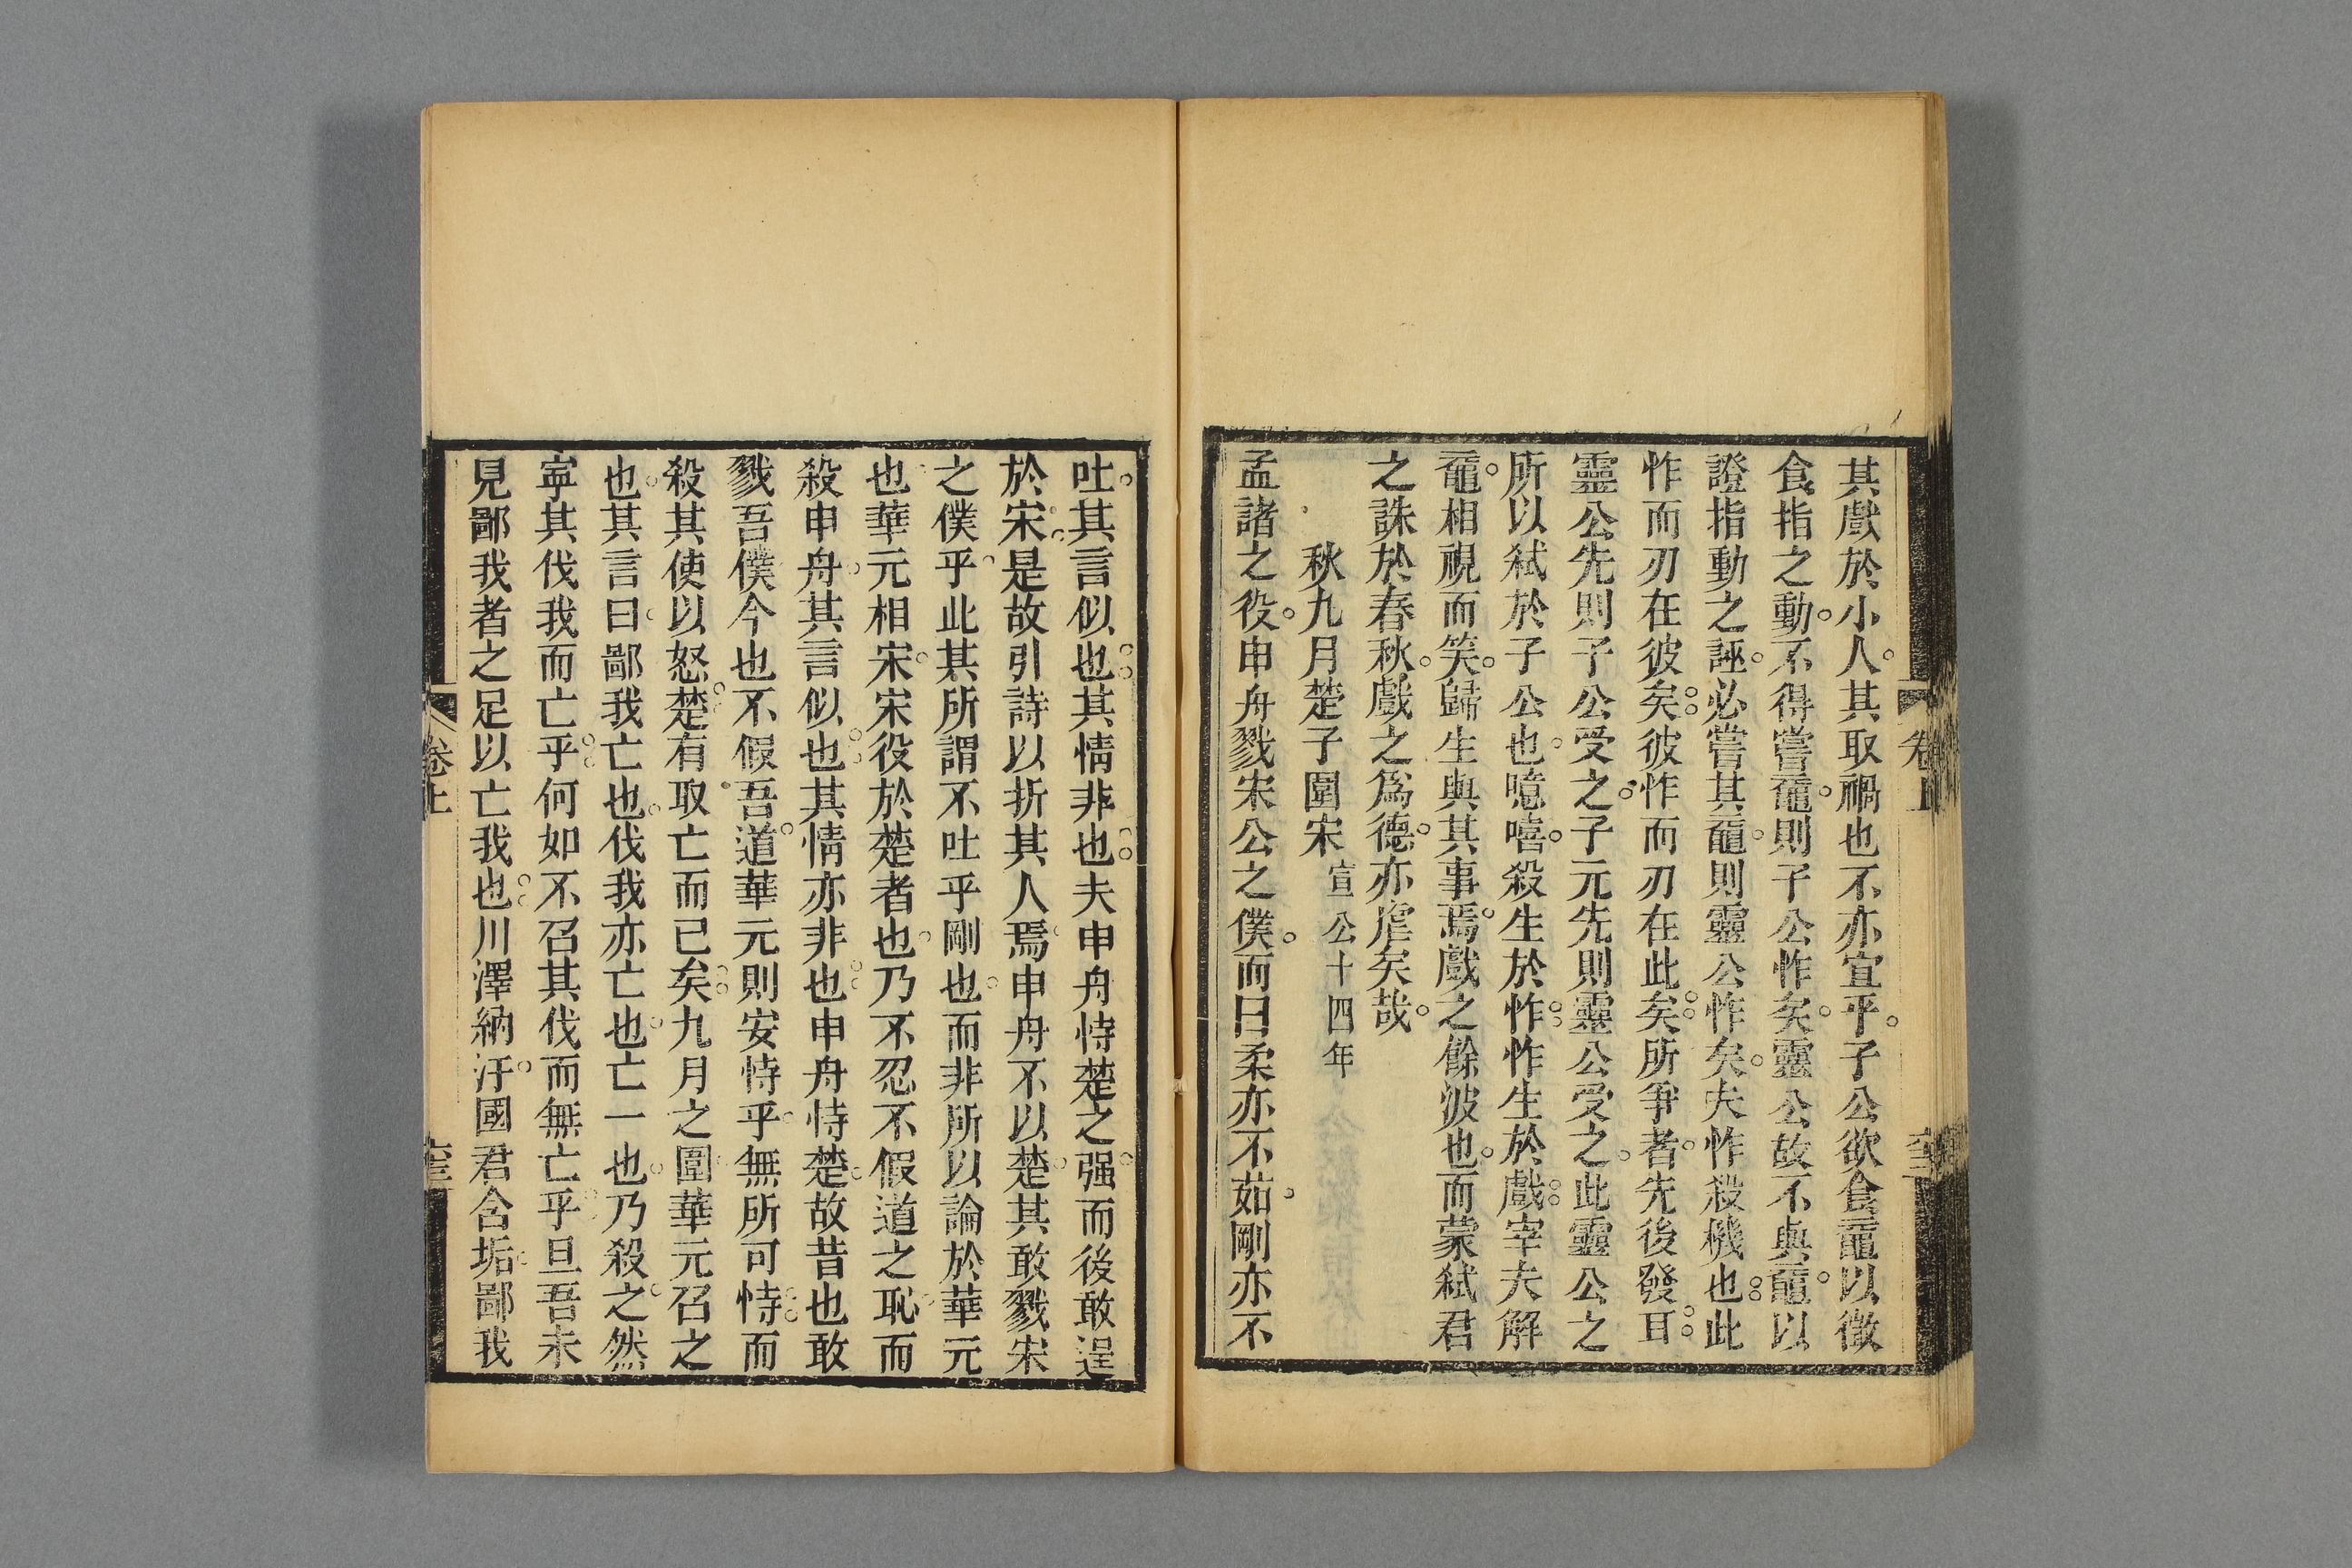 其戲於小人其取禍也不亦宜乎子公欲食黿以徵
食指之動不得嘗黿則子公怍矣靈公故不與黿以
證指動之誣必嘗其黿則靈公怍矣夫怍殺機也此
怍而刃在彼矣彼怍而刃在此矣所爭者先後發耳
靈公先則子公受之子元先則靈公受之此靈公之
所以弒於子公也噫嘻殺生於怍怍生於戲宰夫解
黿相視而笑歸生與其事焉戲之餘波也而蒙弒君
之誅於春秋戲之爲德亦虐矣哉
秋九月楚子圍宋宣公十四年
孟諸之役申舟戮宋公之僕而曰柔亦不茹剛亦不
卷上
吐其言似也其情非也夫申舟恃楚之强而後敢逞
於宋是故引詩以折其人焉申舟不以楚其敢戮宋
之僕乎此其所謂不吐乎剛也而非所以論於華元
也華元相宋宋役於楚者也乃不忍不假道之恥而
殺申舟其言似也其情亦非也申舟恃楚故昔也敢
戮吾僕今也不假吾道華元則安恃乎無所可恃而
殺其使以怒楚有取亡而已矣九月之圍華元召之
也其言曰鄙我亡也伐我亦亡也亡一也乃殺之然
寕其伐我而亡乎何如不召其伐而無亡乎且吾未
見鄙我者之足以亡我也川澤納汙國君含垢鄙我
卷上